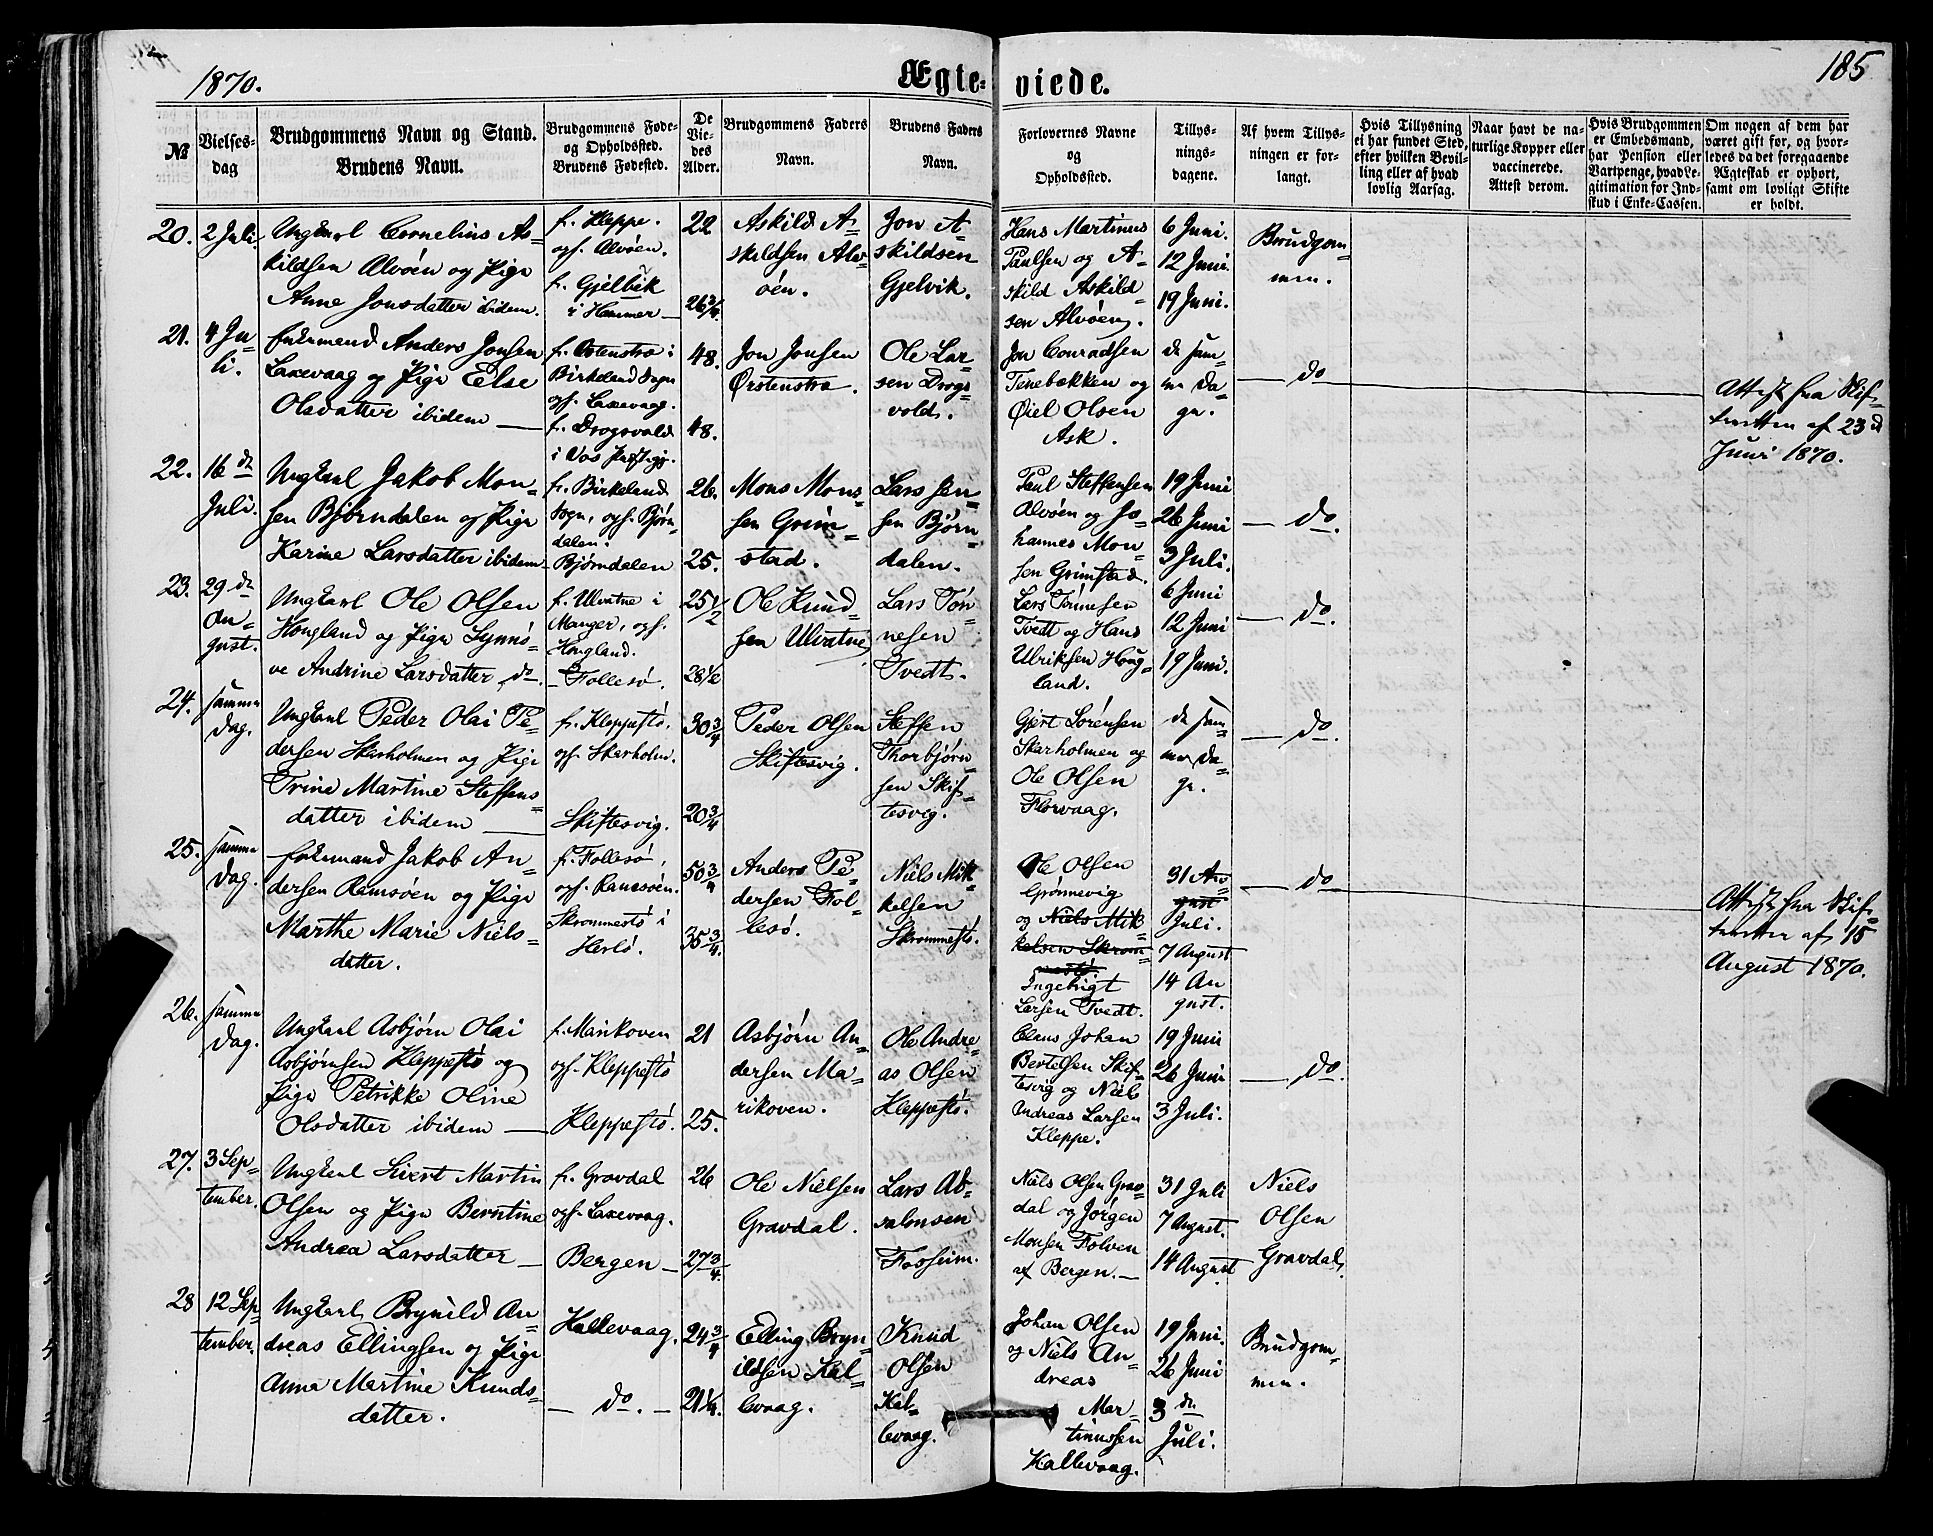 1870.
Ægte-
viede.
185
№
Vielses-
dag
Brudgommens Navn og Stand.
Brudens Navn.
Brudgommens Føde-
og Opholdssted.
Brudens Fødested.
De
Vie-
des
Alder.
Brudgommens Faders
Navn.
Brudens Faders
Navn.
Forlovernes Navne
og
Opholdssted.
Tillys-
nings-
dagene.
Af hvem Tillys-
ningen er for-
langt.
Hvis Tillysning
ei har fundet Sted,
efter hvilken Bevil-
ling eller af hvad
lovlig Aarsag.
Naar havt de na-
turlige Kopper eller
vaccinerede.
Attest derom.
Hvis Brudgommen
er Embedsmand,
har Pension eller
Vartpenge, hvad Le-
gitimation for Ind-
skud i Enke-Cassen.
Om nogen af dem har
været gift før, og hvor-
ledes da det foregaaende
Ægteskab er ophørt,
samt om lovligt Skifte
er holdt.
20.
2 Juli
Ungkarl Cornelius As-
kildsen Alvøen og Pige
Anne Jonsdatter ibidem.
f. Kleppe.
opf. Alvøen.
f. Gjelvik
i Hammer
22
26 3/4
Askild A-
skildsen Alv-
øen.
Jon A-
skildsen
Gjelvik.
Hans Martinus
Paulsen og A-
skild Askild-
sen Alvøen.
6 Juni.
12 Juni.
19 Juni.
Brudgom-
men.
21.
4 Ju-
li.
Enkemand Anders Jonsen
Laxevaag og Pige Else
Olsdatter ibidem
f. Ørstenstra i
Birkeland Sogn
opf. Laxevaag.
f. Drogsvold
i Vos Præstegj.
48.
48.
Jon Jonsen
Ørstenstra.
Ole Lar-
sen Drogs-
vold.
Jon Conradsen
Tenebækken og
Øiel Olsen
Ask.
de sam-
me Da-
ge.
do
Attest fra Skif-
teretten af 23d
Juni 1870.
22.
16 de
Juli.
Ungkarl Jakob Mon-
sen Bjørndalen og Pige
Karine Larsdatter ibidem
f. Birkeland
Sogn, opf. Bjørn-
dalen.
Bjørndalen
26.
25.
Mons Mons-
sen Grim-
stad.
Lars Jen-
sen Bjørn-
dalen.
Paul Steffensen
Alvøen og Jo-
hannes Mon-
sen Grimstad.
19 Juni
26 Juni
3 Juli.
do.
23.
29 de
Au-
gust.
Ungkarl Ole Olsen
Hougland og Pige Synnø-
ve Andrine Larsdatter do.
f. Ulvatne i
Manger, opf.
Hougland.
Follesø.
25 1/2
28 1/2
Ole Knud-
sen Ulvatne
Lars Tøn-
nesen
Tvedt.
Lars Tønnesen
Tvedt og Hans
Ulriksen Houg-
land.
6 Juni
12 Juni
19 Juni.
do.
24.
samme
Dag.
Ungkarl Peder Olai Pe-
dersen Skarholmen og Pige
Trine Martine Steffens-
datter ibidem
f. Kleppestø.
opf. Skarholm.
Skiftesvig.
30 3/4
20 3/4
Peder Olsen
Skiftesvig.
Steffen
Thorbjørn-
sen Skif-
tesvig.
Gjert Sørensen
Skarholmen og
Ole Olsen
Florvaag.
de sam-
me Da-
ge.
do.
25.
samme
Dag.
Enkemand Jakob An-
dersen Ramsøen og Pige
Marthe Marie Niels-
datter.
f. Follesø,
opf. Ramsøen.
Skrommestø i
Herlø.
50 3/4
35 3/4
Anders Pe-
dersen Fol-
lesø.
Niels Mik-
kelsen
Skrommestø.
Ole Olsen
Grønnevig
og Niels Mik-
kelsen Skrom-
mestø
Ingebrigt
Larsen Tvedt.
31 Au-
gust
Juli.
7 August
14 Au
gust.
do
Attest fra Skif-
teretten af 15
August 1870.
26.
samme
Dag.
Ungkarl Asbjørn Olai
Asbjørnsen Kleppestø og
Pige Petrikke Oline
Olsdatter ibidem
f. Marikoven
opf. Kleppestø
Kleppestø.
21
25.
Asbjørn An-
dersen Ma-
rikoven.
Ole Andre-
as Olsen
Kleppestø.
Claus Johan
Bertelsen Skif-
tesvig og Niels
Andreas Larsen
Kleppe.
19 Juni
26 Juni
3 Juli.
do.
27.
3 Sep-
tember.
Ungkarl Sivert Martin
Olsen og Pige Berntine
Andrea Larsdatter
f. Gravdal
opf. Laxevaag.
Bergen
26
27 3/4.
Ole Nielsen
Gravdal.
Lars Ab-
salonsen
Fosheim.
Niels Olsen Grav-
dal og Jørgen
Monsen Folven
af Bergen.
31 Juli
7 August.
14 August
Niels
Olsen
Gravdal.
28
12 Sep
tember.
Ungkarl Brynild An-
dreas Ellingsen og Pige
Anna Martine Knuds-
datter.
Kallevaag.
do.
24 3/4
21 1/4.
Elling Bryn-
ildsen Kal-
levaag.
Knud
Olsen
Kal-
levaag.
Johan Olsen
og Niels An-
dreas
Mar-
tinussen
Kallevaag.
19 Juni.
26 Juni
3 de
Juli.
Brudgom-
men.